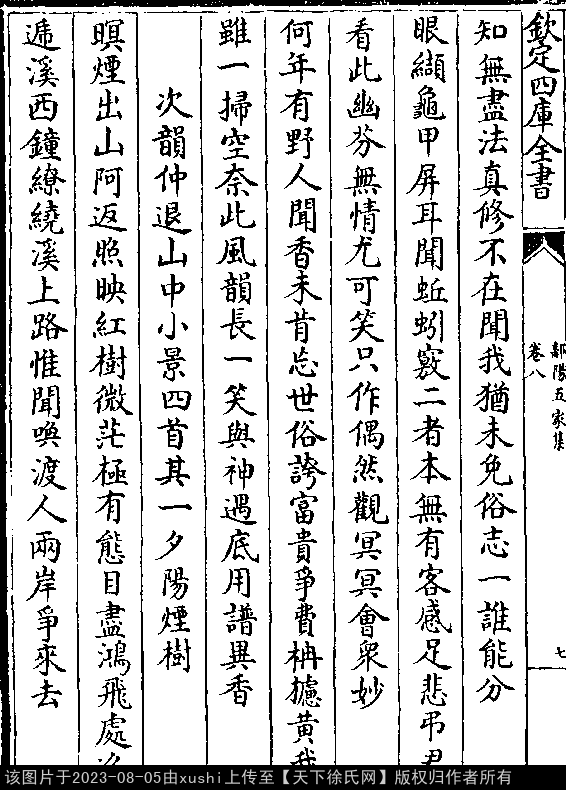 欽定四庫全書
鄱陽五家集
卷八
七
知無盡法真修不在聞我猶未免俗志一誰能分
眼纈龜甲屏耳聞蚯蚓竅二者本無有客感足悲弔君
看此幽芬無情尤可笑只作偶然觀冥冥會衆妙
何年有野人聞香未肯忘世俗誇富貴爭費枏攄黄我
雖一掃空奈此風韻長一笑與神遇底用譜異香
次韻仲退山中小景四首其一夕陽煙樹
暝煙出山阿返照映紅樹微茫極有態目盡鴻飛處
遞溪西鐘繚繞溪上路惟聞喚渡人兩岸爭來去
该图片于2023-08-05由xushi上传至【天下徐氏网】版权归作者所有